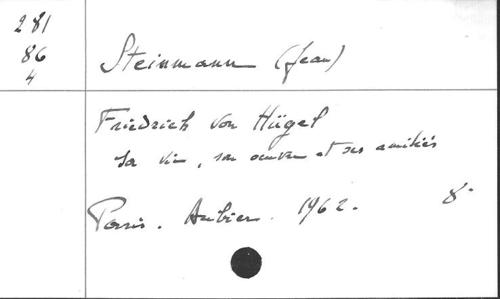 281
86
4
Steinmann (Jean)
Friedrich von Hügel
Sa vie, son oeuvre et ses amitiés
Paris. Aubier. 1962. 8°